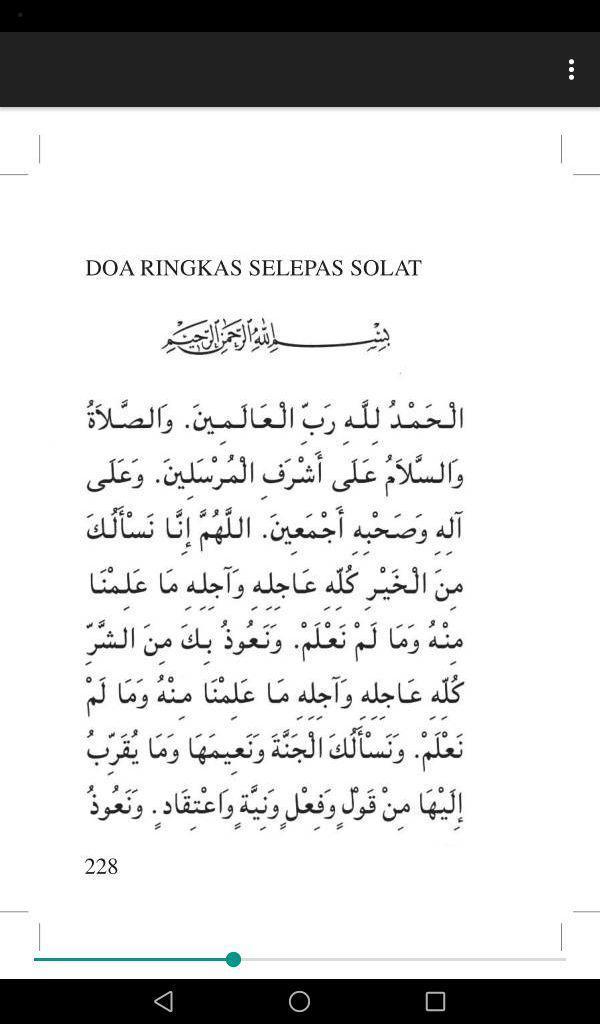 DOA RINGKAS SELEPAS SOLAT
بِسْمِ اللَّهِ الرَّحْمَٰنِ الرَّحِيمِ
الْحَمْدُ لِلَّهِ رَبِّ الْعَالَمِينَ. وَالصَّلَاةُ
وَالسَّلَامُ عَلَى أَشْرَفِ الْمُرْسَلِينَ. وَعَلَى
آلِهِ وَصَحْبِهِ أَجْمَعِينَ. اللَّهُمَّ إِنَّا نَسْأَلُكَ
مِنَ الْخَيْرِ كُلِّهِ عَاجِلِهِ وَآجِلِهِ مَا عَلِمْنَا
مِنْهُ وَمَا لَمْ نَعْلَمْ. وَنَعُوذُ بِكَ مِنَ الشَّرِّ
كُلِّهِ عَاجِلِهِ وَآجِلِهِ مَا عَلِمْنَا مِنْهُ وَمَا لَمْ
نَعْلَمْ. وَنَسْأَلُكَ الْجَنَّةَ وَنَعِيمَهَا وَمَا يُقَرِّبُ
إِلَيْهَا مِنْ قَوْلٍ وَفِعْلٍ وَنِيَّةٍ وَاعْتِقَادٍ. وَنَعُوذُ
228